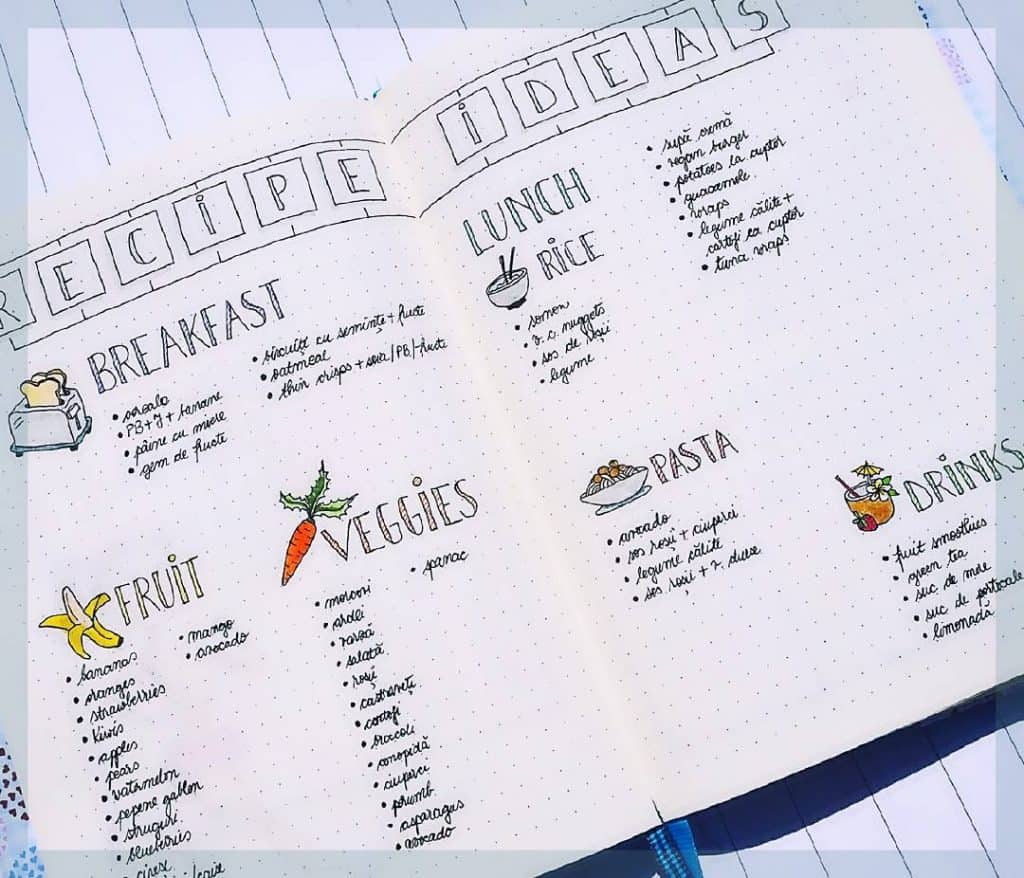 RECIPE IDEAS
BREAKFAST
• cereale
• PB+J + banane
• pâine cu miere
• gem de fructe
• biscuiți cu semințe + fructe
• oatmeal
• thin crisps + soia/PB/fructe
FRUIT
• bananas
• oranges
• strawberries
• kiwis
• apples
• pears
• watermelon
• pepene galben
• struguri
• blueberries
• cireși
• mango
• avocado
VEGGIES
• morcovi
• ardei
• varză
• salată
• roșii
• castraveți
• cartofi
• brocoli
• conopidă
• ciuperci
• porumb
• asparagus
• avocado
• spanac
LUNCH
RICE
• somon
• v. c. nuggets
• sos de roșii
• legume
• supă cremă
• vegan burger
• potatoes la cuptor
• guacamole
• wraps
• legume călite +
cartofi la cuptor
• tuna wraps
PASTA
• avocado
• sos roșii + ciuperci
• legume călite
• sos roșii + v.
DRINKS
• fruit smoothies
• green tea
• suc de mere
• suc de portocale
• limonadă